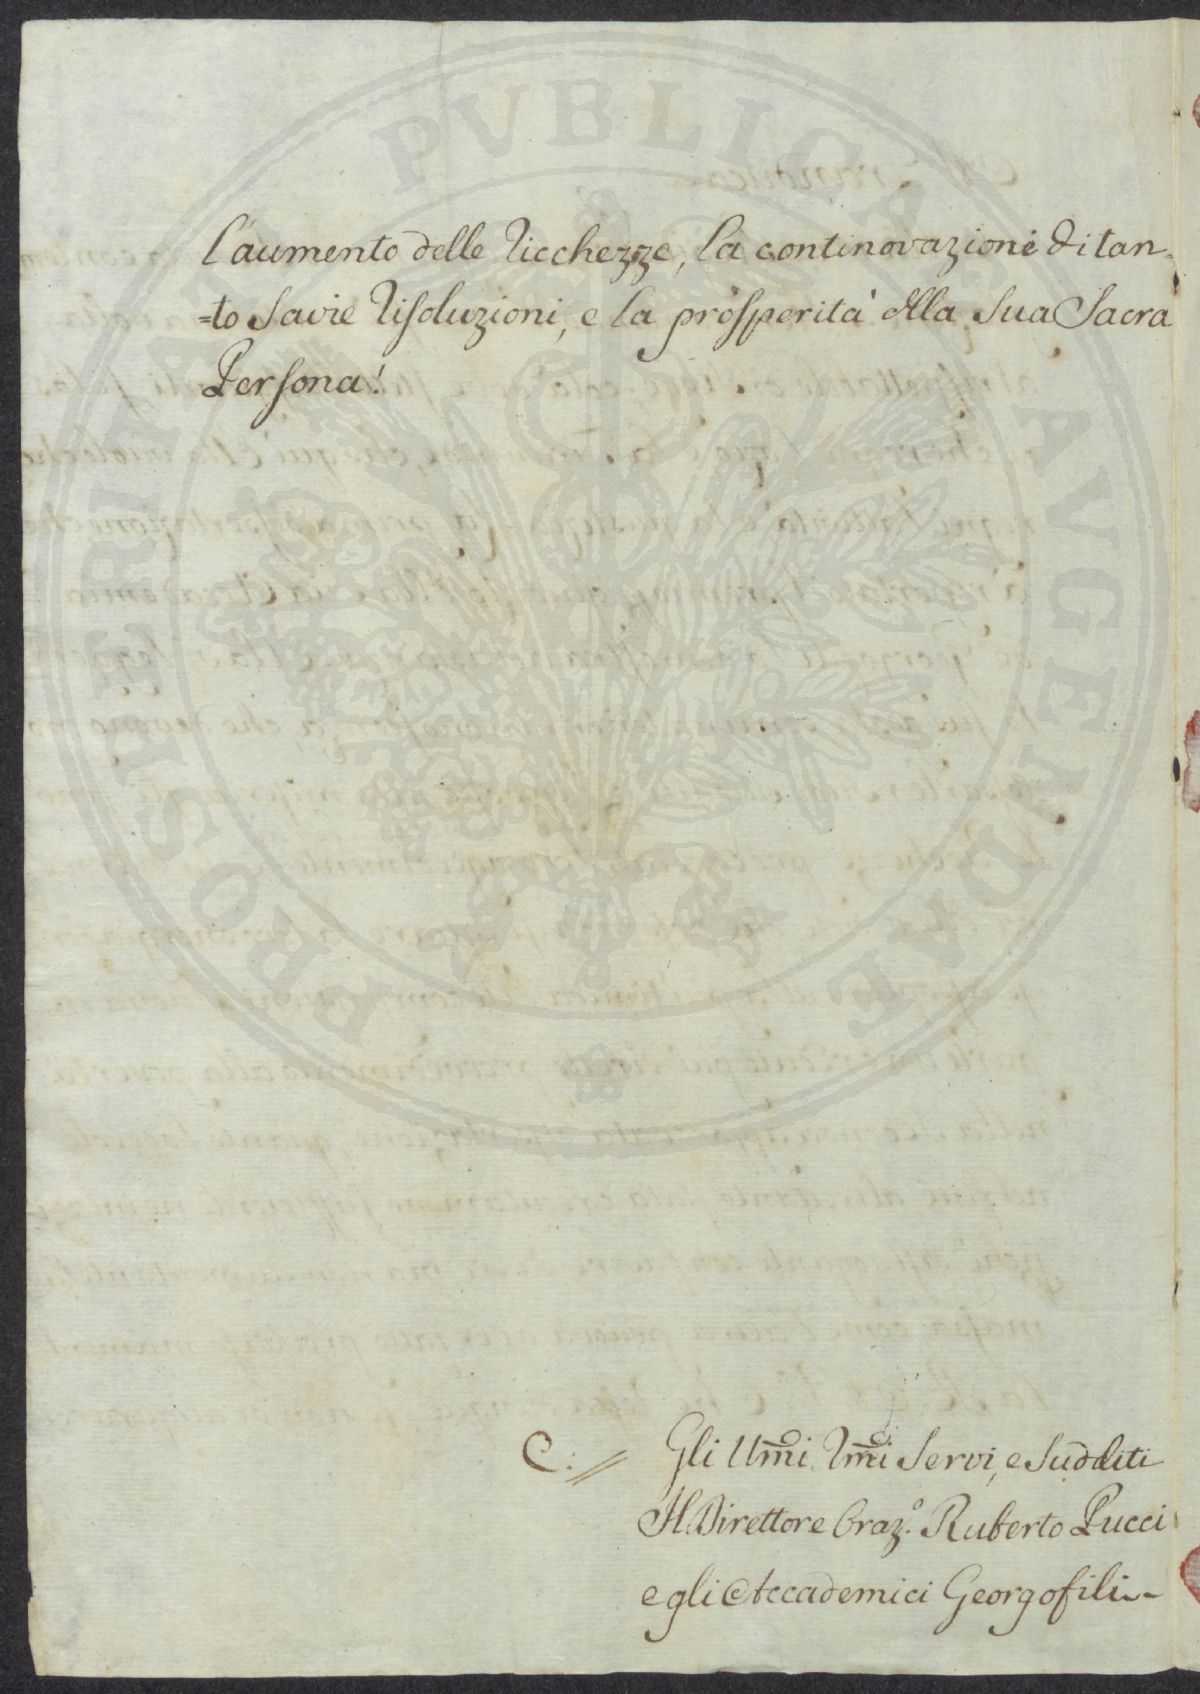 PROSPERITATI PVBLICAE AVGENDAE
l'aumento delle Ricchezze, la continovazione di tan-
=to savie Risoluzioni, e la prosperità della sua Sacra
Persona!
C:// Gli Ummi Ummi Servi, e Sudditi
Il Direttore Oraz.º Ruberto Pucci
e gli Accademici Georgofili-